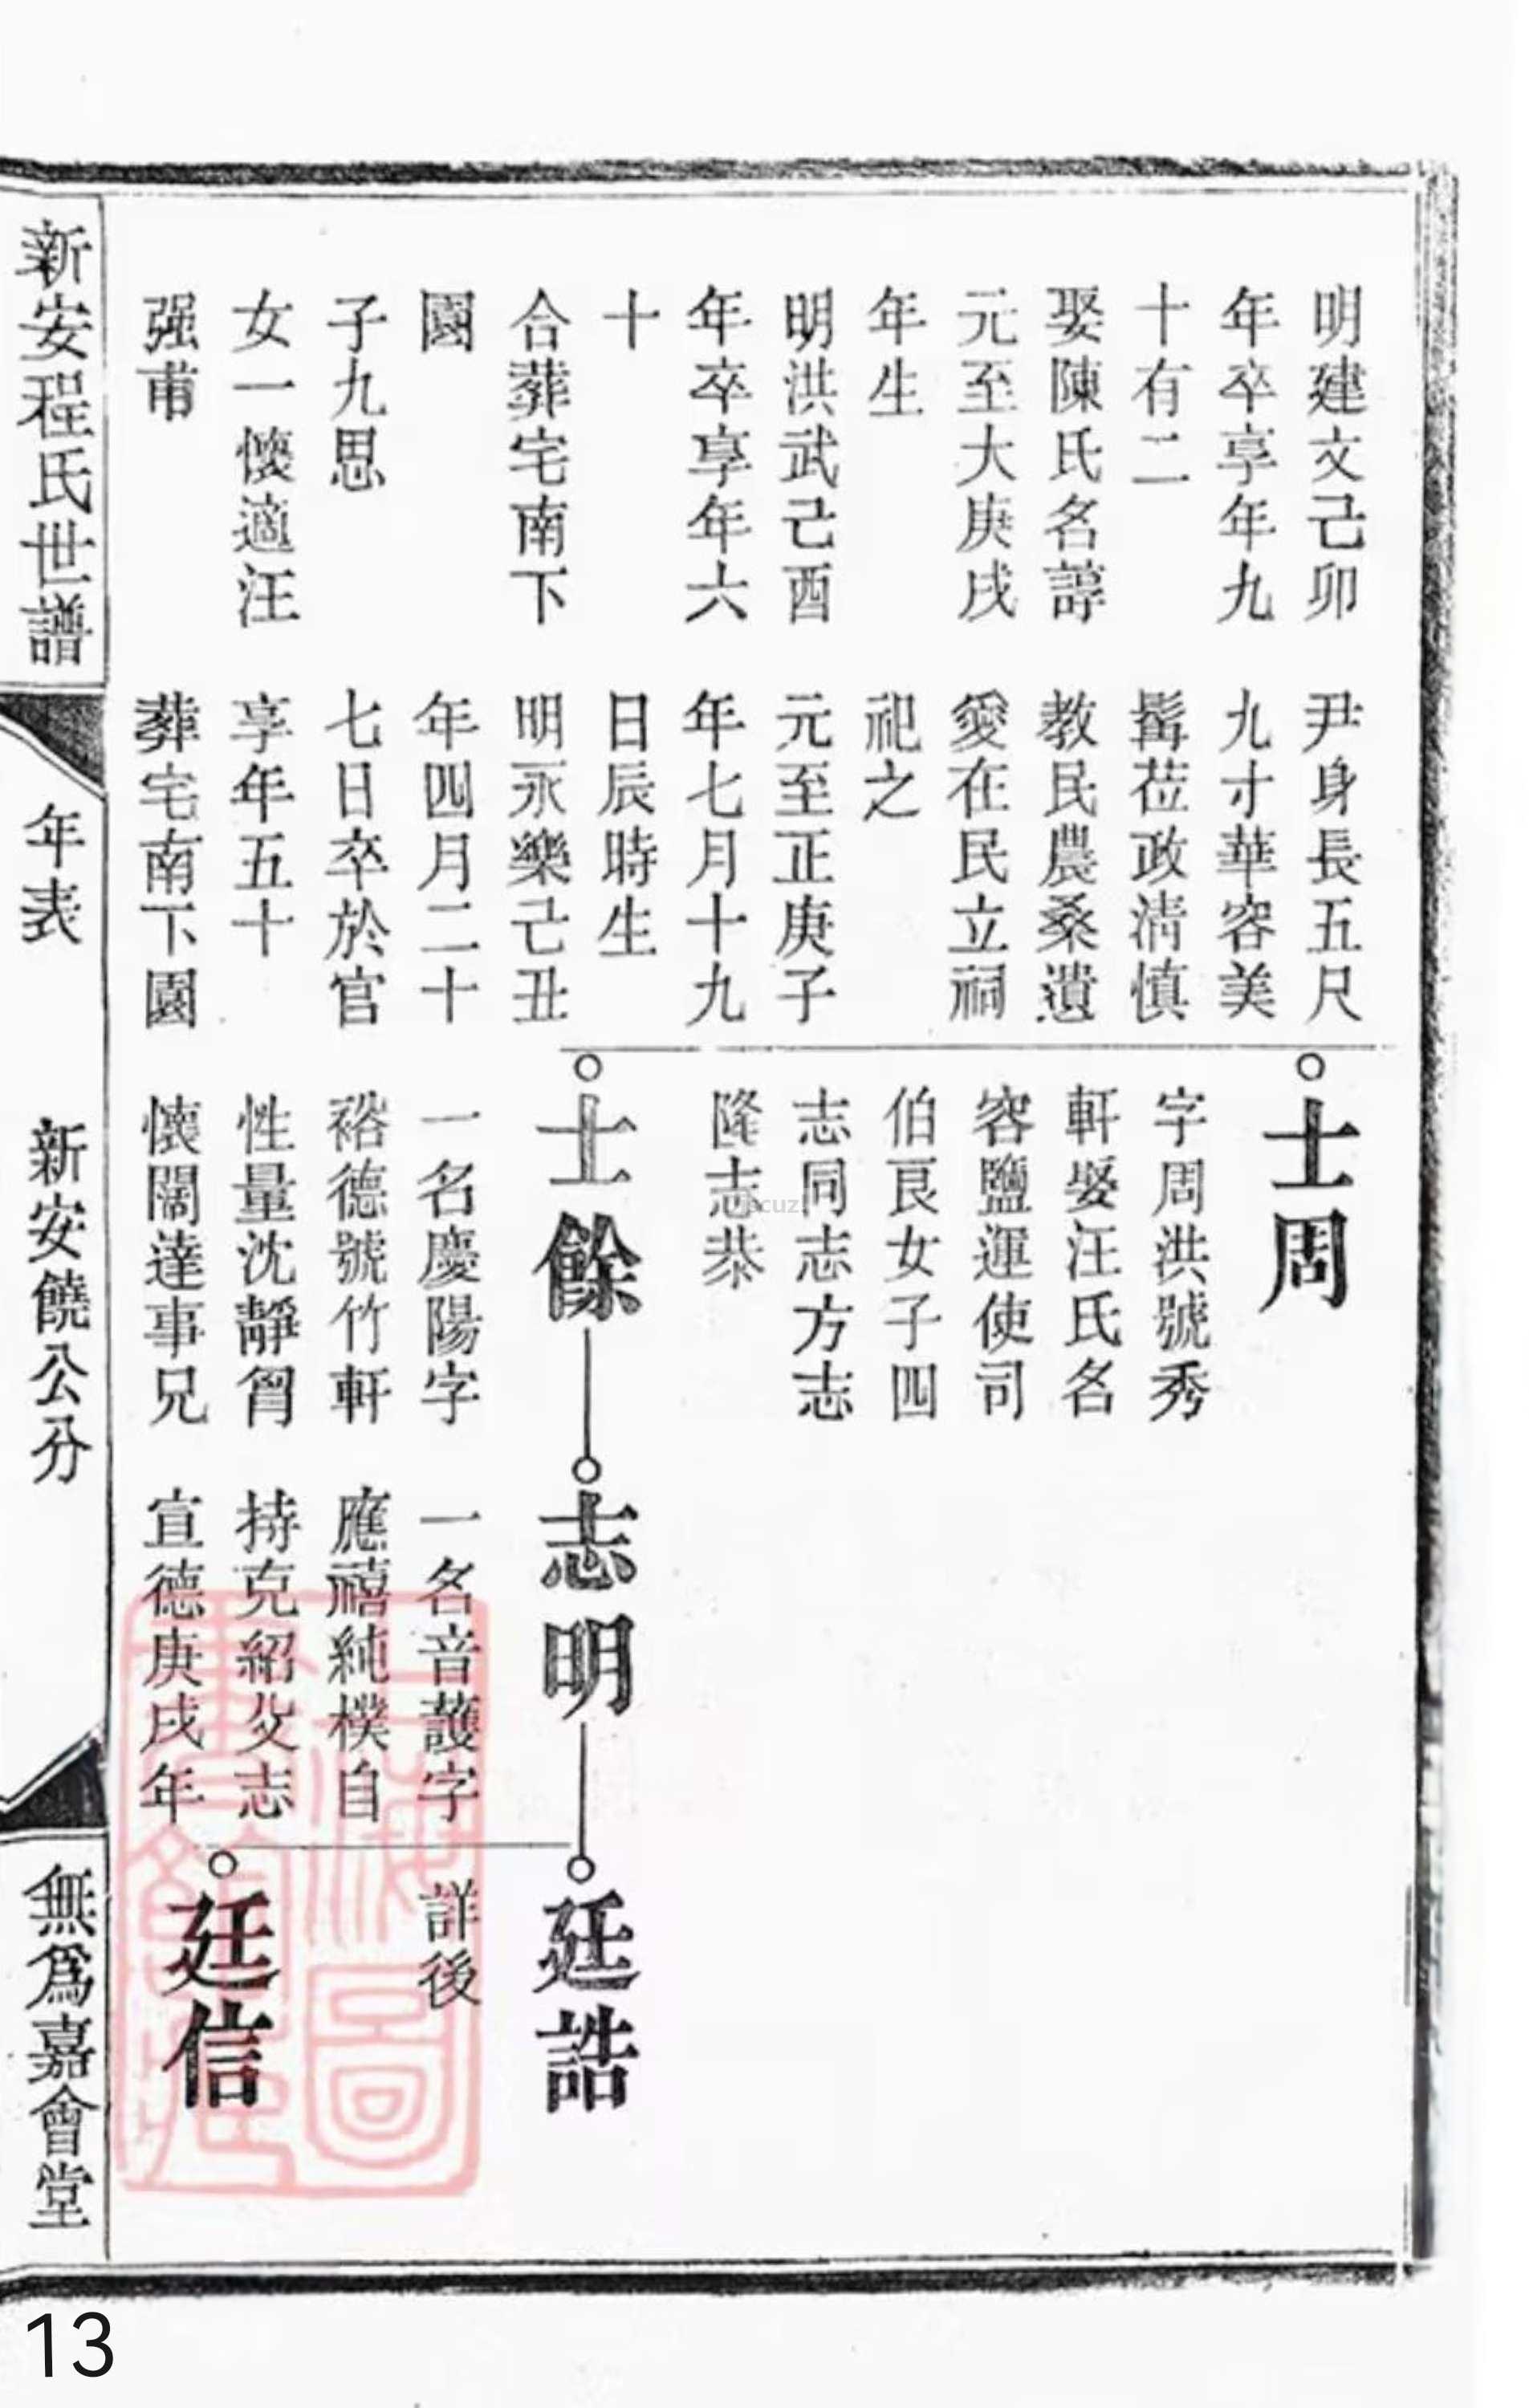 明建文己卯
年卒享年九
十有二
娶陳氏名諄
元至大庚戌
年生
明洪武己酉
年卒享年六
十
合葬宅南下
園
子九思
女一懷適汪
强甫
尹身長五尺
九寸華容美
髯莅政清慎
教民農桑遺
愛在民立祠
祀之
元至正庚子
年七月十九
日辰時生
明永樂己丑
年四月二十
七日卒於官
享年五十
葬宅南下園
士周
字周洪號秀
軒娶汪氏名
容鹽運使司
伯良女子四
志同志方志
隆志恭
士餘
一名慶陽字
裕德號竹軒
性量沈靜胷
懷闊達事兄
志明
一名音護字
應禧純樸自
持克紹父志
宣德庚戌年
廷誥
詳後
廷信
新安程氏世譜
年表
新安饒公分
無爲嘉會堂
上海圖
書館藏
13